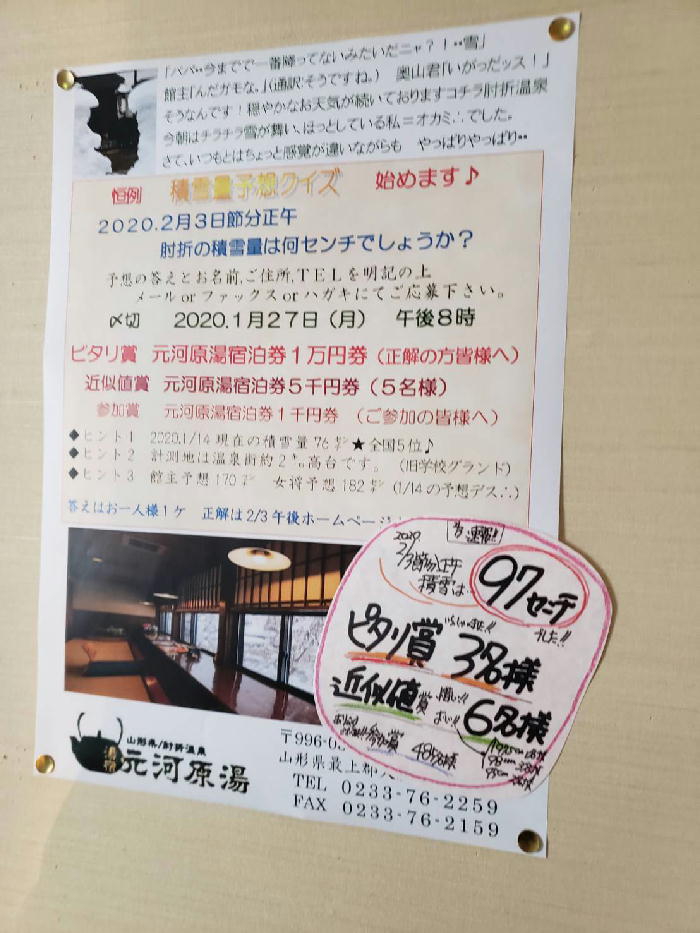 「パパ‥今までで一番降ってないみたいだニャ？！‥雪」
館主「んだガモな。」（通訳：そうですね。）　奥山君「いがっだッス！」
そうなんです！穏やかなお天気が続いておりますコチラ肘折温泉
今朝はチラチラ雪が舞い、ほっとしている私＝オカミ∴でした。
さて、いつもとはちょっと感覚が違いながらも　やっぱりやっぱり‥
恒例　積雪量予想クイズ　始めます♪
２０２０.２月３日節分正午
肘折の積雪量は何センチでしょうか？
予想の答えとお名前､ご住所､ＴＥＬを明記の上
メール or ファックス or ハガキにてご応募下さい。
〆切　2020.1月27日（月）　午後８時
ピタリ賞　元河原湯宿泊券１万円券（正解の方皆様へ）
近似値賞　元河原湯宿泊券５千円券（５名様）
参加賞　元河原湯宿泊券１千円券　（ご参加の皆様へ）
◆ヒント１　2020.1/14 現在の積雪量 76㌢★全国5位♪
◆ヒント２　計測地は温泉街約２㌔高台です。（旧学校グランド）
◆ヒント３　館主予想 170㌢　女将予想 182㌢（1/14の予想デス∴）
答えはお一人様１ケ　正解は2/3午後ホームページ
速報!!
2020
2/3節分正午
積雪は‥
97センチ
でした!!
ピタリ賞　いらっしゃいました!!　3名様
近似値賞　6名様
参加賞　485名様
山形県/肘折温泉
元河原湯
〒996-0
山形県最上郡大
TEL　0233-76-2259
FAX　0233-76-2159